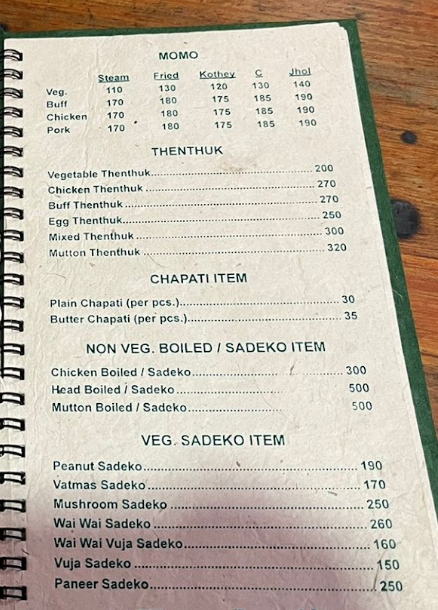 MOMO
Steam Fried Kothey C Jhol
Veg. 110 130 120 130 140
Buff 170 180 175 185 190
Chicken 170 180 175 185 190
Pork 170 180 175 185 190
THENTHUK
Vegetable Thenthuk 200
Chicken Thenthuk 270
Buff Thenthuk 270
Egg Thenthuk 250
Mixed Thenthuk 300
Mutton Thenthuk 320
CHAPATI ITEM
Plain Chapati (per pcs.) 30
Butter Chapati (per pcs.) 35
NON VEG. BOILED / SADEKO ITEM
Chicken Boiled / Sadeko 300
Head Boiled / Sadeko 500
Mutton Boiled / Sadeko 500
VEG. SADEKO ITEM
Peanut Sadeko 190
Vatmas Sadeko 170
Mushroom Sadeko 250
Wai Wai Sadeko 260
Wai Wai Vuja Sadeko 160
Vuja Sadeko 150
Paneer Sadeko 250